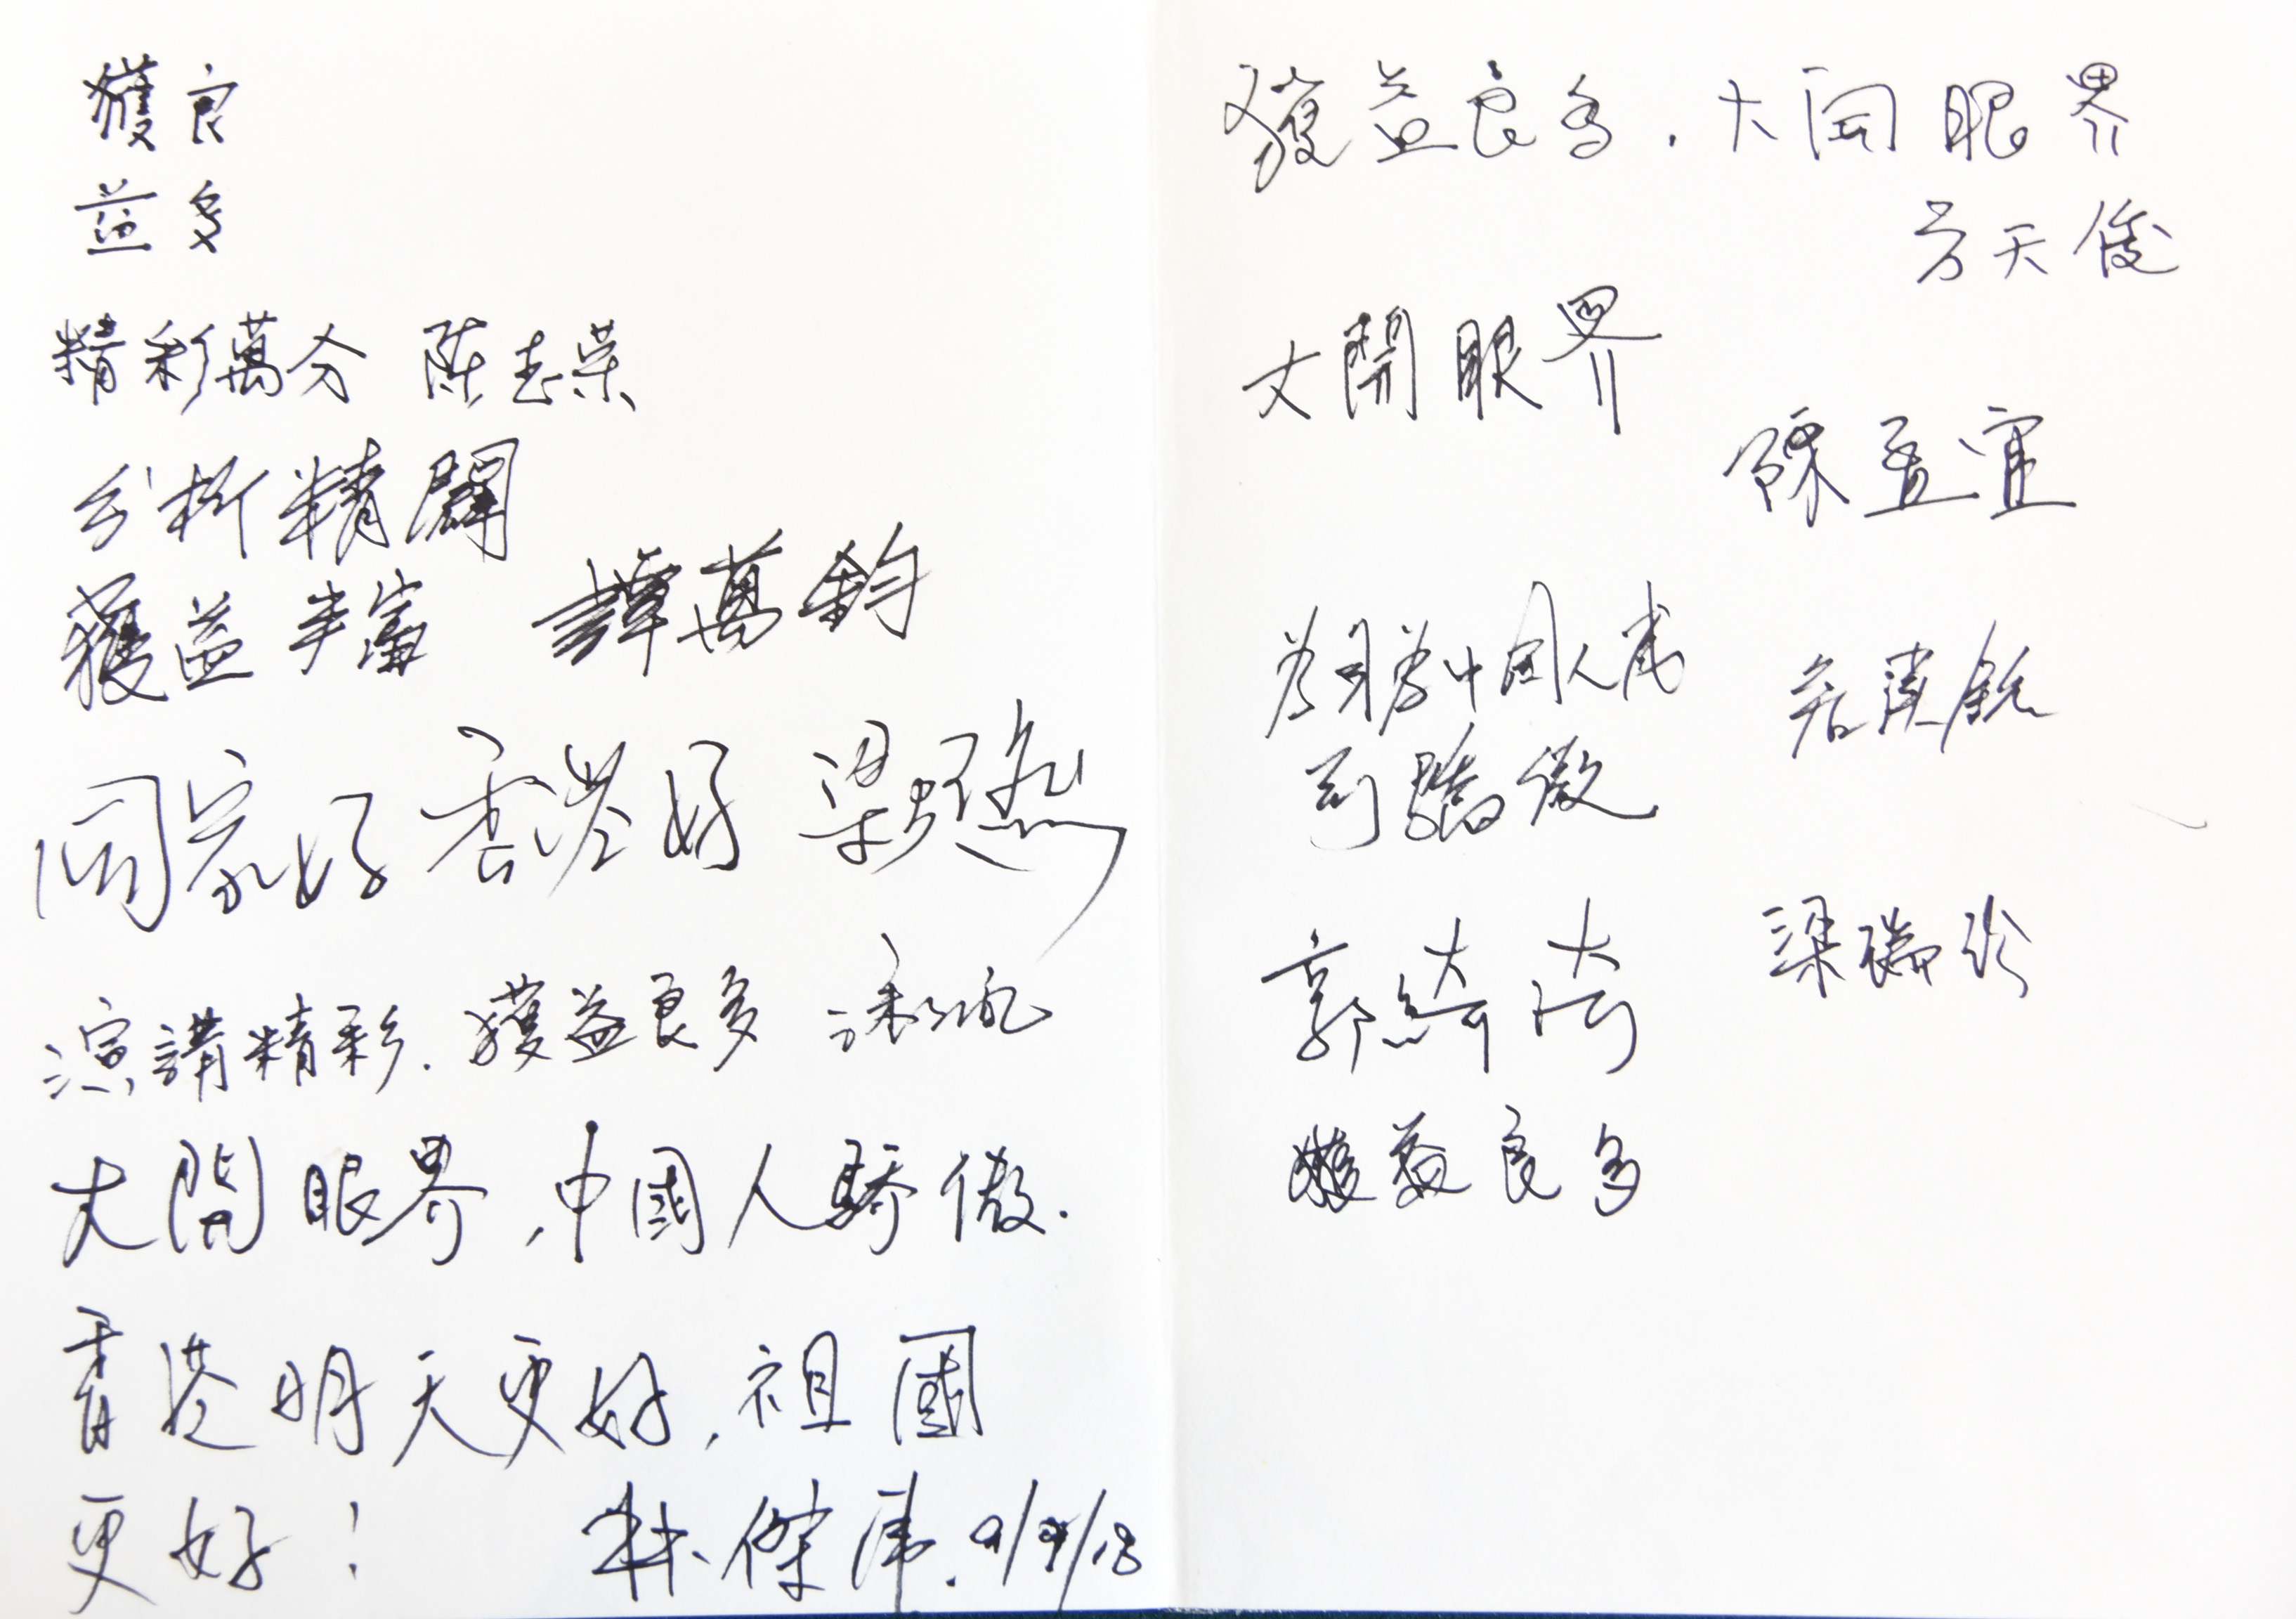 獲良
益多
精彩萬分 陈志荣
分析精闢
獲益丰富 譚萬鈞
國家好 香港好 梁
演講精彩．獲益良多
大開眼界，中國人驕傲．
香港明天更好，祖國
更好！ 林傑 9/9/18
獲益良多．大開眼界
方天俊
大開眼界
陳孟宜
中国人
驕傲
郭綺清 梁瑞
獲益良多